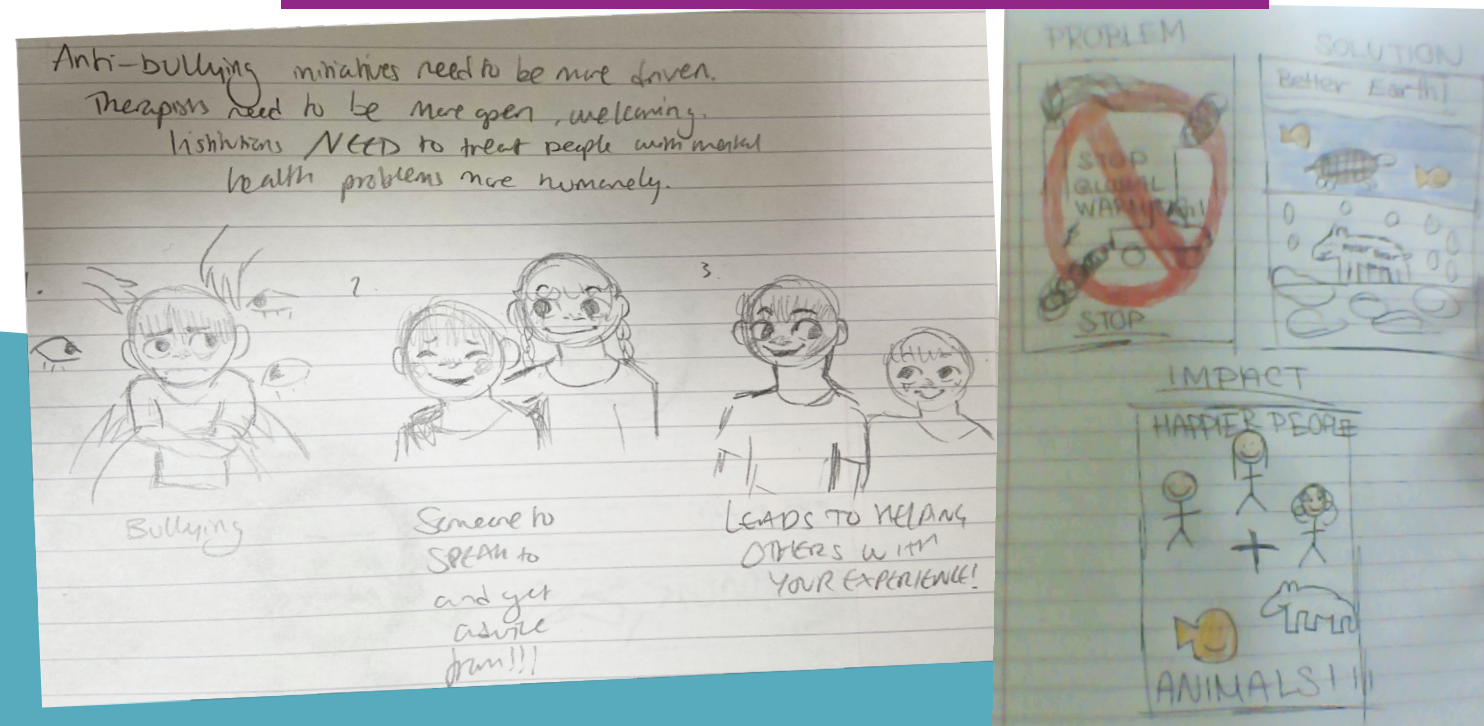 Anti-bullying initiatives need to be more driven.
Therapists need to be more open, welcoming.
Institutions NEED to treat people with mental
health problems more humanely.
1.
2.
3.
Bullying
Someone to
SPEAK to
and get
advice
from!!!
LEADS TO HELPING
OTHERS WITH
YOUR EXPERIENCE!
PROBLEM
STOP
GLOBAL
WARMING!!
STOP
SOLUTION
Better Earth!
Polar Bear
IMPACT
HAPPIER PEOPLE
+
ANIMALS!!!!